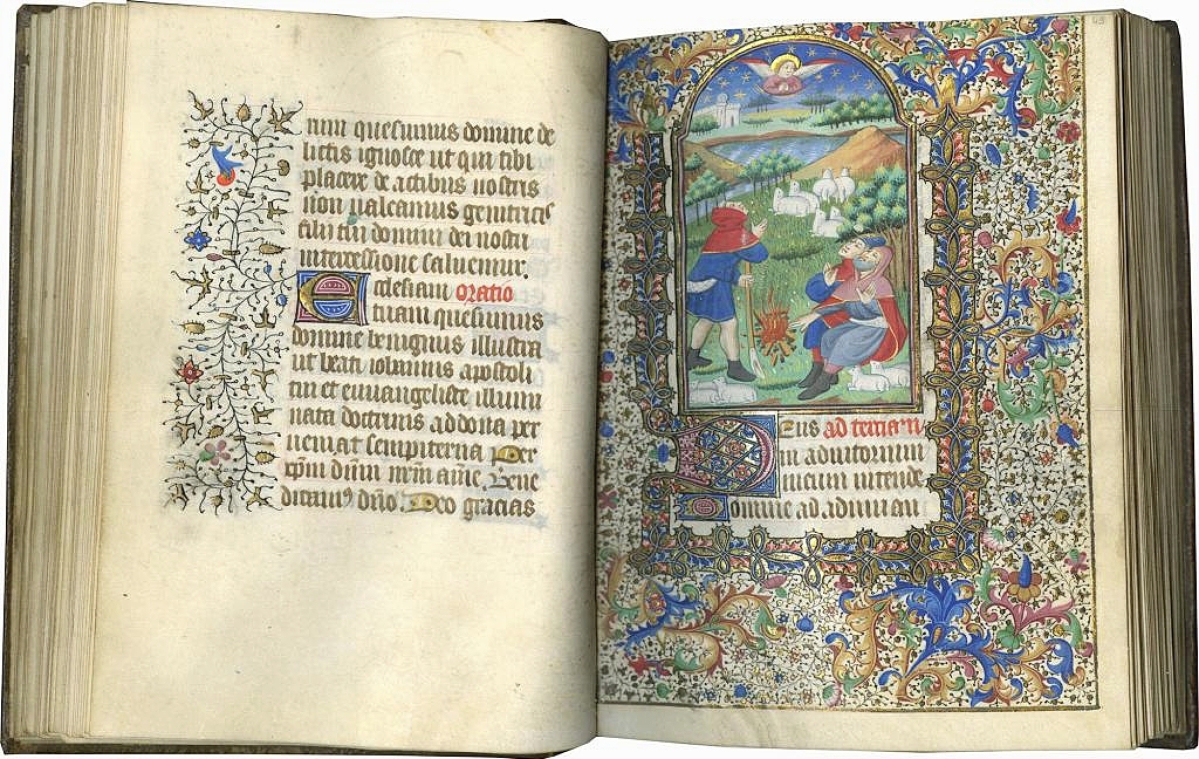 rum quesumus domine de
lictis ignosce ut qui tibi
placere de actibus nostris
non valeamus genitricis
filii tui domini dei nostri
intercessione salvemur.
Ecclesiam oratio
tuam quesumus
domine benignus illustra
ut beati iohannis apostoli
tui et euuangeliste illumi
nata doctrinis ad dona per
veniat sempiterna Per
xpm dnm nrm ame. Bene
dicamus dno. Deo gracias
Deus ad terciam
in adiutorium
meum intende
Domine ad adiuvan